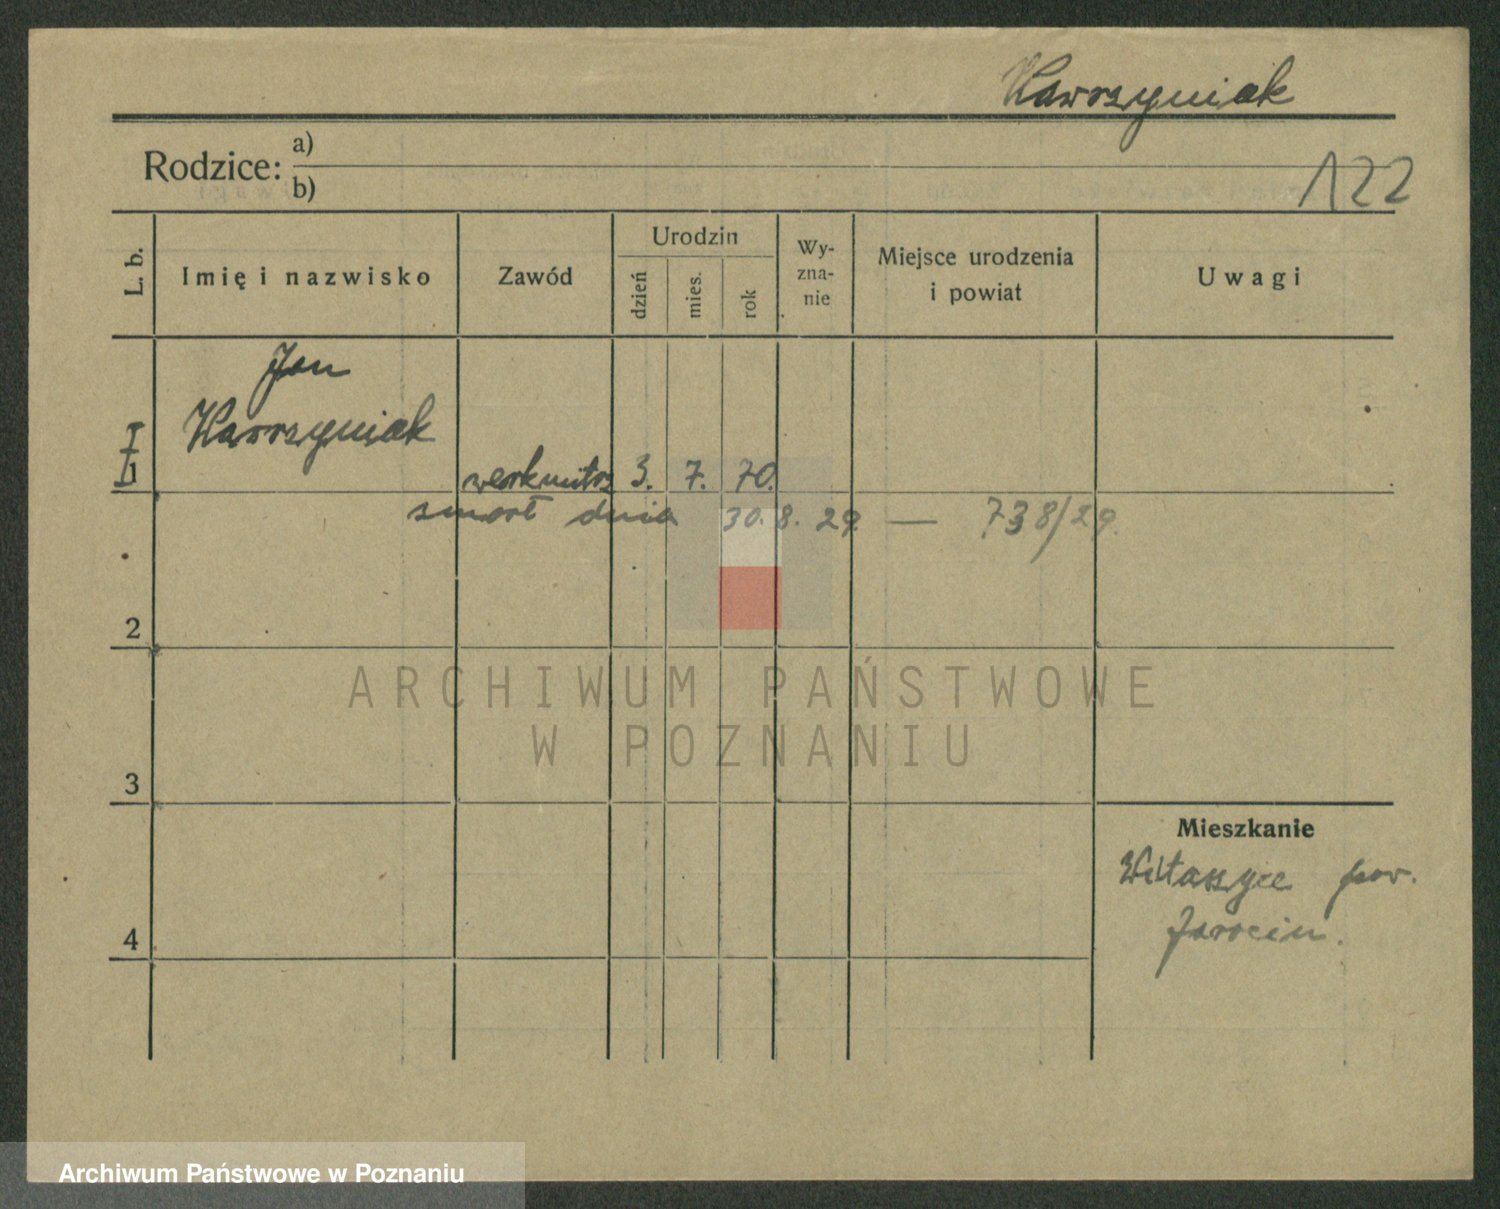 Kawrzyniak
Rodzice: a)
b)
122
L. b.
Imię i nazwisko
Zawód
Urodzin
dzień
mies.
rok
Wy-
zna-
nie
Miejsce urodzenia
i powiat
Uwagi
Jan
Kawrzyniak
1
werkmitrz 3. 7. 70.
zmarł dnia 30. 8. 29. — 738/29.
2
ARCHIWUM PAŃSTWOWE
W POZNANIU
3
Mieszkanie
Witaszyce pow.
Jarocin.
4
Archiwum Państwowe w Poznaniu